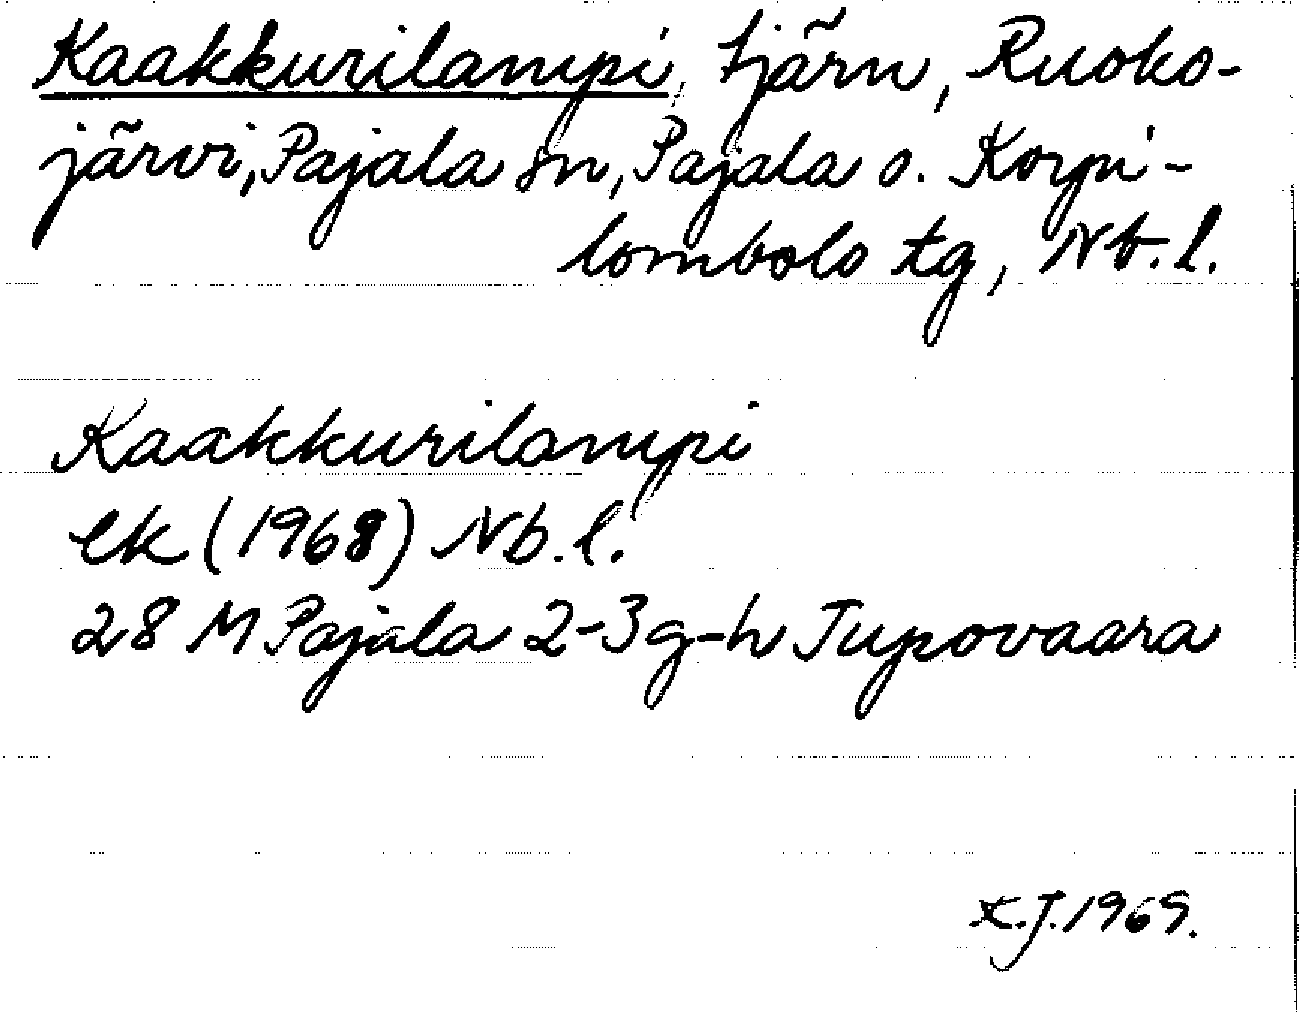 Kaakkurilampi, tjärn, Ruoko-
järvi, Pajala sn, Pajala o. Korpi-
lombolo tg, Nb. l.
Kaakkurilampi
ek (1968) Nb. l.
28 M Pajala 2-3 g-h Jupovaara
K.J. 1969.